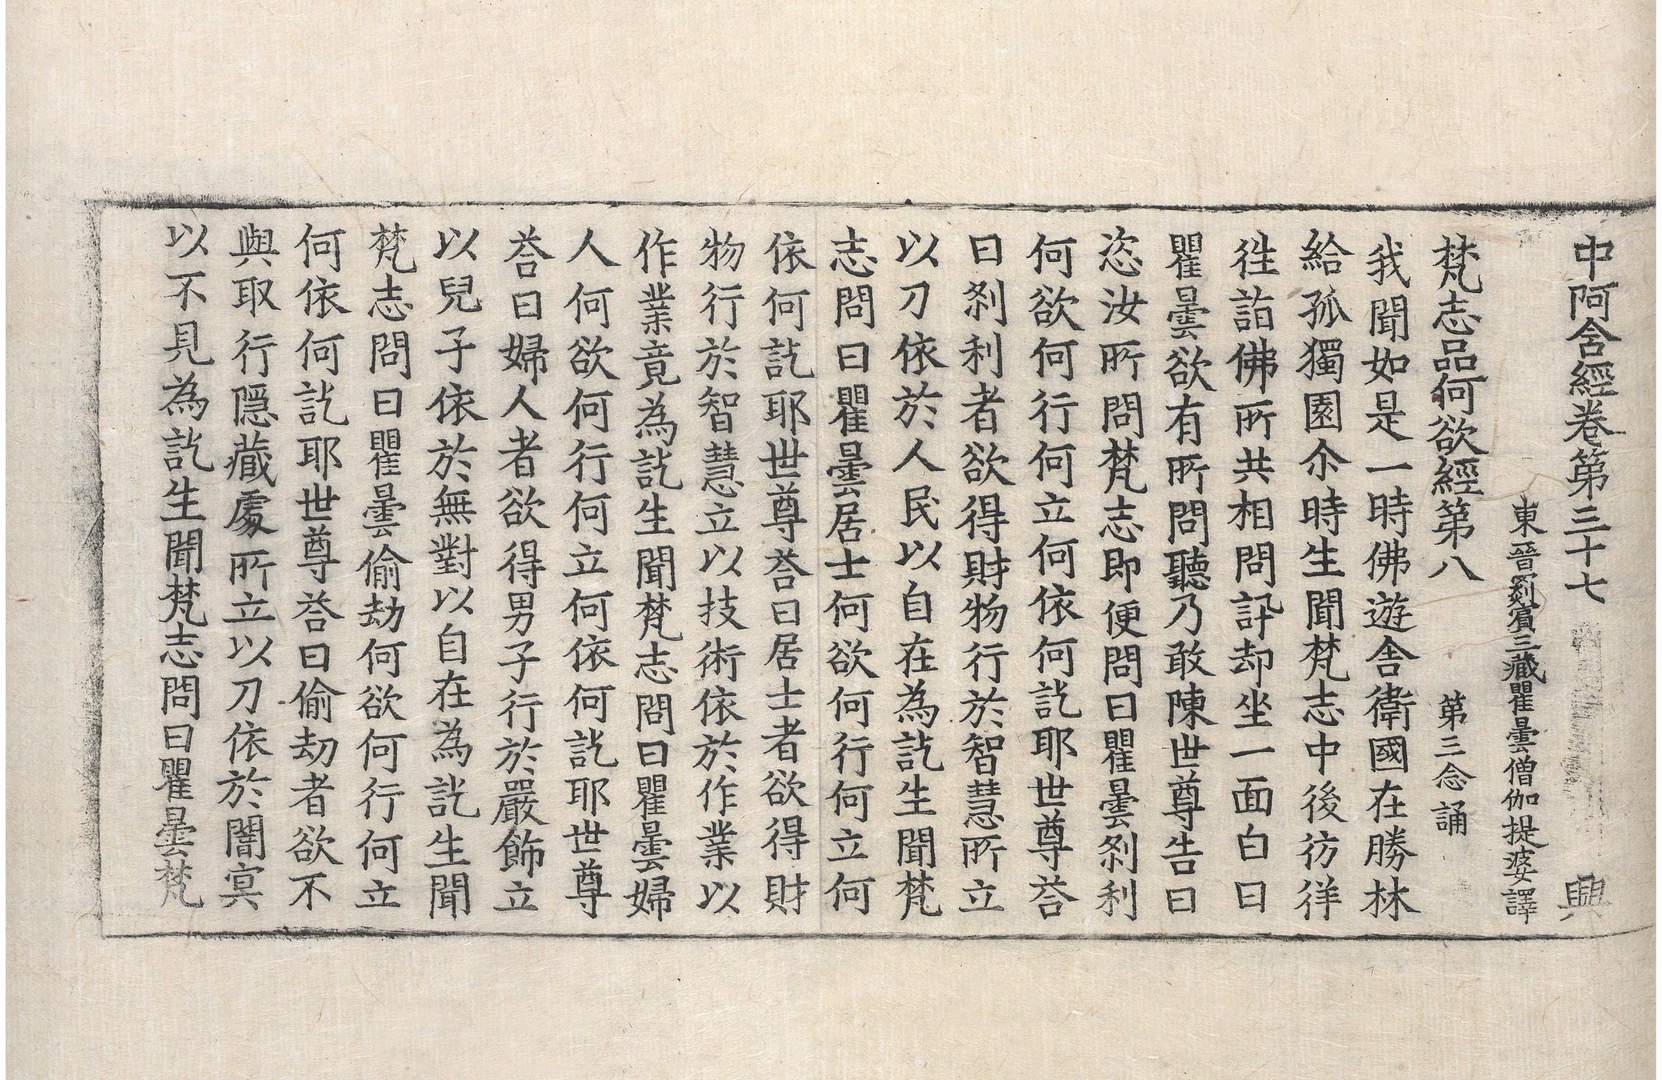 中阿含經卷第三十七　興
東晉罽賓三藏瞿曇僧伽提婆譯
梵志品何欲經第八　第三念誦
我聞如是一時佛遊舍衛國在勝林
給孤獨園尒時生聞梵志中後彷徉
徃詣佛所共相問訊却坐一面白曰
瞿曇欲有所問聽乃敢陳世尊告曰
恣汝所問梵志即便問曰瞿曇刹利
何欲何行何立何依何訖耶世尊荅
曰刹利者欲得財物行於智慧所立
以刀依於人民以自在為訖生聞梵
志問曰瞿曇居士何欲何行何立何
依何訖耶世尊荅曰居士者欲得財
物行於智慧立以技術依於作業以
作業竟為訖生聞梵志問曰瞿曇婦
人何欲何行何立何依何訖耶世尊
荅曰婦人者欲得男子行於嚴飾立
以兒子依於無對以自在為訖生聞
梵志問曰瞿曇偷劫何欲何行何立
何依何訖耶世尊荅曰偷劫者欲不
與取行隱藏處所立以刀依於闇冥
以不見為訖生聞梵志問曰瞿曇梵